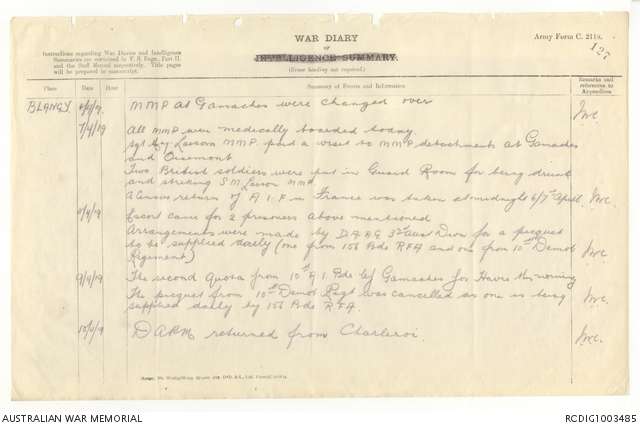 WAR DIARY
or
INTELLIGENCE SUMMARY.
(Erase heading not required.)
Army Form C. 2118.
127
Instructions regarding War Diaries and Intelligence
Summaries are contained in F. S. Regs., Part II.
and the Staff Manual respectively. Title pages
will be prepared in manuscript.
Place Date Hour Summary of Events and Information Remarks and references to Appendices
BLANGY 6/4/19 MMP at Gamaches were changed over
7/4/19 All MMP were medically boarded today
MMP paid a visit to MMP detachments at Gamaches
and Oisemont
Two British soldiers were put in Guard Room for being drunk
and striking S M MMP
A Census return of A.I.F in France was taken at midnight 6/7th April
8/4/19 Escort came for 2 prisoners above mentioned
Arrangements were made by D.A.A.G 3rd Aust Divn for a picquet
to be supplied daily (one from 156 Bde RFA and one from 10th Demob
Regiment)
9/4/19 The second Quota from 10th A.I. Bde left Gamaches for Havre this morning
The picquet from 10th Demob Regt was cancelled as one is being
supplied daily by 156 Bde RFA.
10/4/19 DAPM returned from Charleroi
AUSTRALIAN WAR MEMORIAL
RCDIG1003485